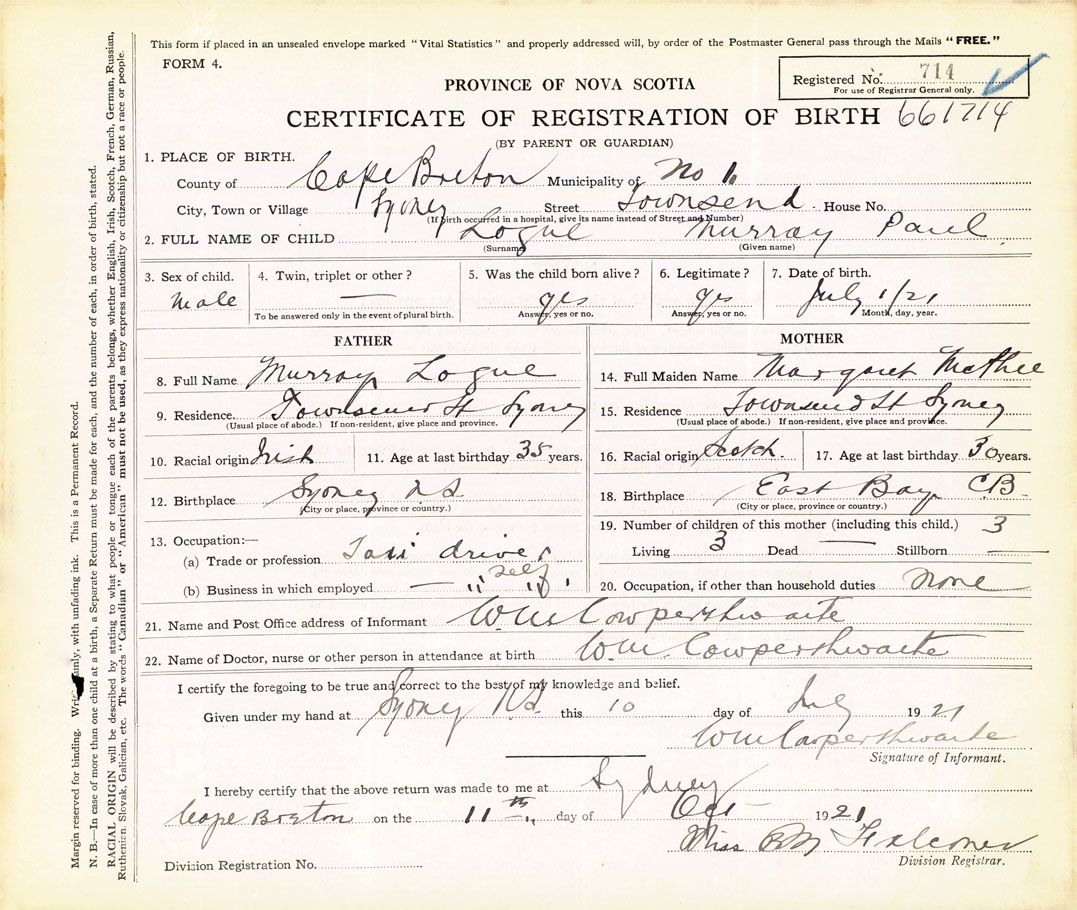 This form if placed in an unsealed envelope marked "Vital Statistics" and properly addressed will, by order of the Postmaster General pass through the Mails "FREE."
FORM 4.
Registered No. 714
For use of Registrar General only.
PROVINCE OF NOVA SCOTIA
CERTIFICATE OF REGISTRATION OF BIRTH 661714
(BY PARENT OR GUARDIAN)
1. PLACE OF BIRTH.
County of Cape Breton Municipality of No 1.
City, Town or Village Sydney Street Townsend House No.
(If birth occurred in a hospital, give its name instead of Street and Number)
2. FULL NAME OF CHILD Logue Murray Paul
(Surname) (Given name)
3. Sex of child. 4. Twin, triplet or other? 5. Was the child born alive? 6. Legitimate? 7. Date of birth.
Male — yes yes July 1/21
To be answered only in the event of plural birth. Answer, yes or no. Answer, yes or no. Month, day, year.
FATHER
8. Full Name Murray Logue
9. Residence Townsend St Sydney
(Usual place of abode.) If non-resident, give place and province.
10. Racial origin Irish 11. Age at last birthday 35 years.
12. Birthplace Sydney N.S
(City or place, province or country.)
13. Occupation:—
(a) Trade or profession Taxi driver
(b) Business in which employed — " self "
MOTHER
14. Full Maiden Name Margaret McPhee
15. Residence Townsend St Sydney
(Usual place of abode.) If non-resident, give place and province.
16. Racial origin Scotch. 17. Age at last birthday 30 years.
18. Birthplace East Bay C.B.
(City or place, province or country.)
19. Number of children of this mother (including this child.) 3
Living 3 Dead — Stillborn —
20. Occupation, if other than household duties None
21. Name and Post Office address of Informant Wm Cowperthwaite
22. Name of Doctor, nurse or other person in attendance at birth Wm Cowperthwaite
I certify the foregoing to be true and correct to the best of my knowledge and belief.
Given under my hand at Sydney N.S. this 10 day of July 1921
Wm Cowperthwaite
Signature of Informant.
I hereby certify that the above return was made to me at Sydney
Cape Breton on the 11th day of Oct 1921
Miss B M Falconer
Division Registrar.
Division Registration No.
Margin reserved for binding. Write plainly, with unfading ink. This is a Permanent Record.
N. B.—In case of more than one child at a birth, a Separate Return must be made for each, and the number of each, in order of birth, stated.
RACIAL ORIGIN will be described by stating to what people or tongue each of the parents belongs, whether English, Irish, Scotch, French, German, Russian,
Ruthenian, Slovak, Galician, etc. The words "Canadian" or "American" must not be used, as they express nationality or citizenship but not a race or people.